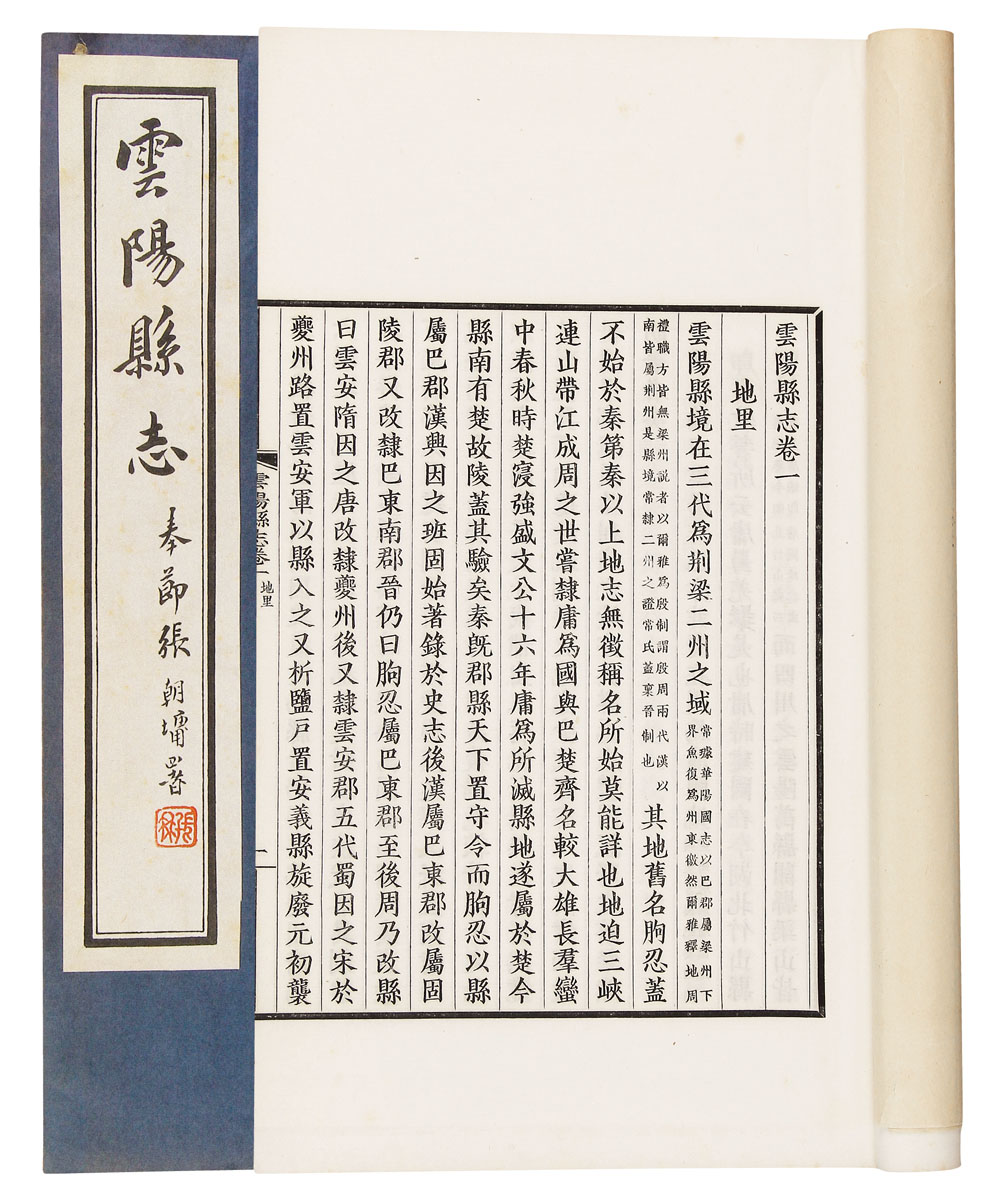 雲陽縣志
奉節張朝墉署
雲陽縣志卷一
地里
雲陽縣境在三代爲荆梁二州之域常璩華陽國志以巴郡屬梁州下界魚復爲州東徼然爾雅釋地周
禮職方皆無梁州説者以爾雅爲殷制謂殷周兩代漢以南皆屬荆州是縣境常隸二州之證常氏蓋稟晉制也其地舊名朐忍蓋
不始於秦第秦以上地志無徵稱名所始莫能詳也地迫三峽
連山帶江成周之世嘗隸庸爲國與巴楚齊名較大雄長羣蠻
中春秋時楚寖強盛文公十六年庸爲所滅縣地遂屬於楚今
縣南有楚故陵蓋其驗矣秦既郡縣天下置守令而朐忍以縣
屬巴郡漢興因之班固始著錄於史志後漢屬巴東郡改屬固
陵郡又改隸巴東南郡晉仍曰朐忍屬巴東郡至後周乃改縣
曰雲安隋因之唐改隸夔州後又隸雲安郡五代蜀因之宋於
夔州路置雲安軍以縣入之又析鹽戶置安義縣旋廢元初襲
雲陽縣志卷一 地里 一